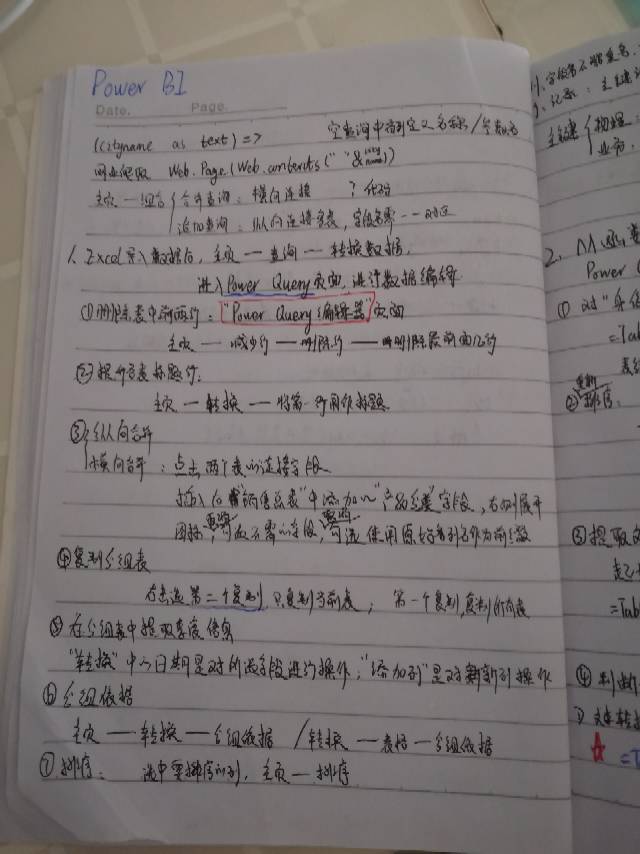 Power BI
Date. Page.
(cityname as text) => 空查询中得到定义名称/参数名
网业爬取 Web.Page(Web.contents(" "&city name))
主页—组合 合并查询:横向连接 ?代码
追加查询:纵向连接多表,字段名需一一对应
1. Excel导入数据后,主页—查询—转换数据,
进入Power Query页面,进行数据编辑
①删除表中前两行:"Power Query编辑器"页面
主页—减少行—删除行—删除最前面几行
②提升多表标题行:
主页—转换—将第一行用作标题
③纵向合并
横向合并:点击两个表的连接字段
插入后 "销售总表"中添加 "产品分类"字段,右侧展开
图标, 需的字段, 使用原始列名作为前缀
④复制分组表
右击选第二个复制 只复制当前表;第一个复制,复制所有表
⑤在分组表中提取季度信息
"转换"中的日期是对所选字段进行操作;"添加列"是对新列操作
⑥分组依据
主页—转换—分组依据 / 转换—表格—分组依据
⑦排序: 选中要排序的列,主页—排序
主键
物理:
2.
Power
① 对
=Tab
② 重新排序:
③ 提取
=Tab
④ 判断